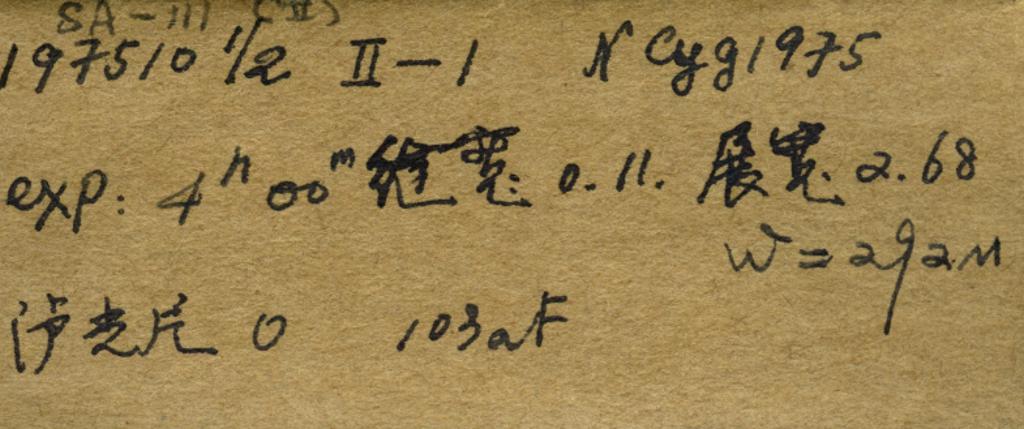 SA-III (II)
197510 1/2 II-1 N Cyg 1975
exp: 4h 00m 缝宽: 0.11. 展宽: 2.68
W = 292μ
滤光片 0 103aF